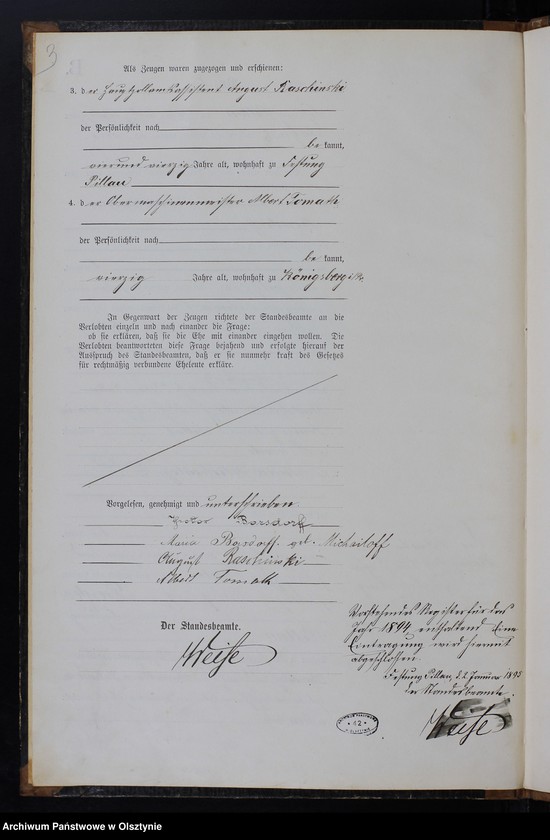 3
Als Zeugen waren zugezogen und erschienen:
3. der Hauptzollamtsassistent August Raschinski
der Persönlichkeit nach
be kannt,
vierundvierzig Jahre alt, wohnhaft zu Festung
Pillau
4. der Obermaschinenmeister Albert Tomath
der Persönlichkeit nach
be kannt,
vierzig Jahre alt, wohnhaft zu Königsberg i/Pr.
In Gegenwart der Zeugen richtete der Standesbeamte an die
Verlobten einzeln und nach einander die Frage:
ob sie erklären, daß sie die Ehe mit einander eingehen wollen. Die
Verlobten beantworteten diese Frage bejahend und erfolgte hierauf der
Ausspruch des Standesbeamten, daß er sie nunmehr kraft des Gesetzes
für rechtmäßig verbundene Eheleute erkläre.
Vorgelesen, genehmigt und unterschrieben
Borsdorff
Maria Borsdorff geb. Michailoff
August Raschinski
Albert Tomath
Der Standesbeamte.
Weise
Vorstehendes Register für das
Jahr 1894, enthaltend Eine
Eintragung wird hiermit
abgeschlossen
Festung Pillau, d 2 Januar 1895
der Standesbeamte.
Weise
42
Archiwum Państwowe w Olsztynie